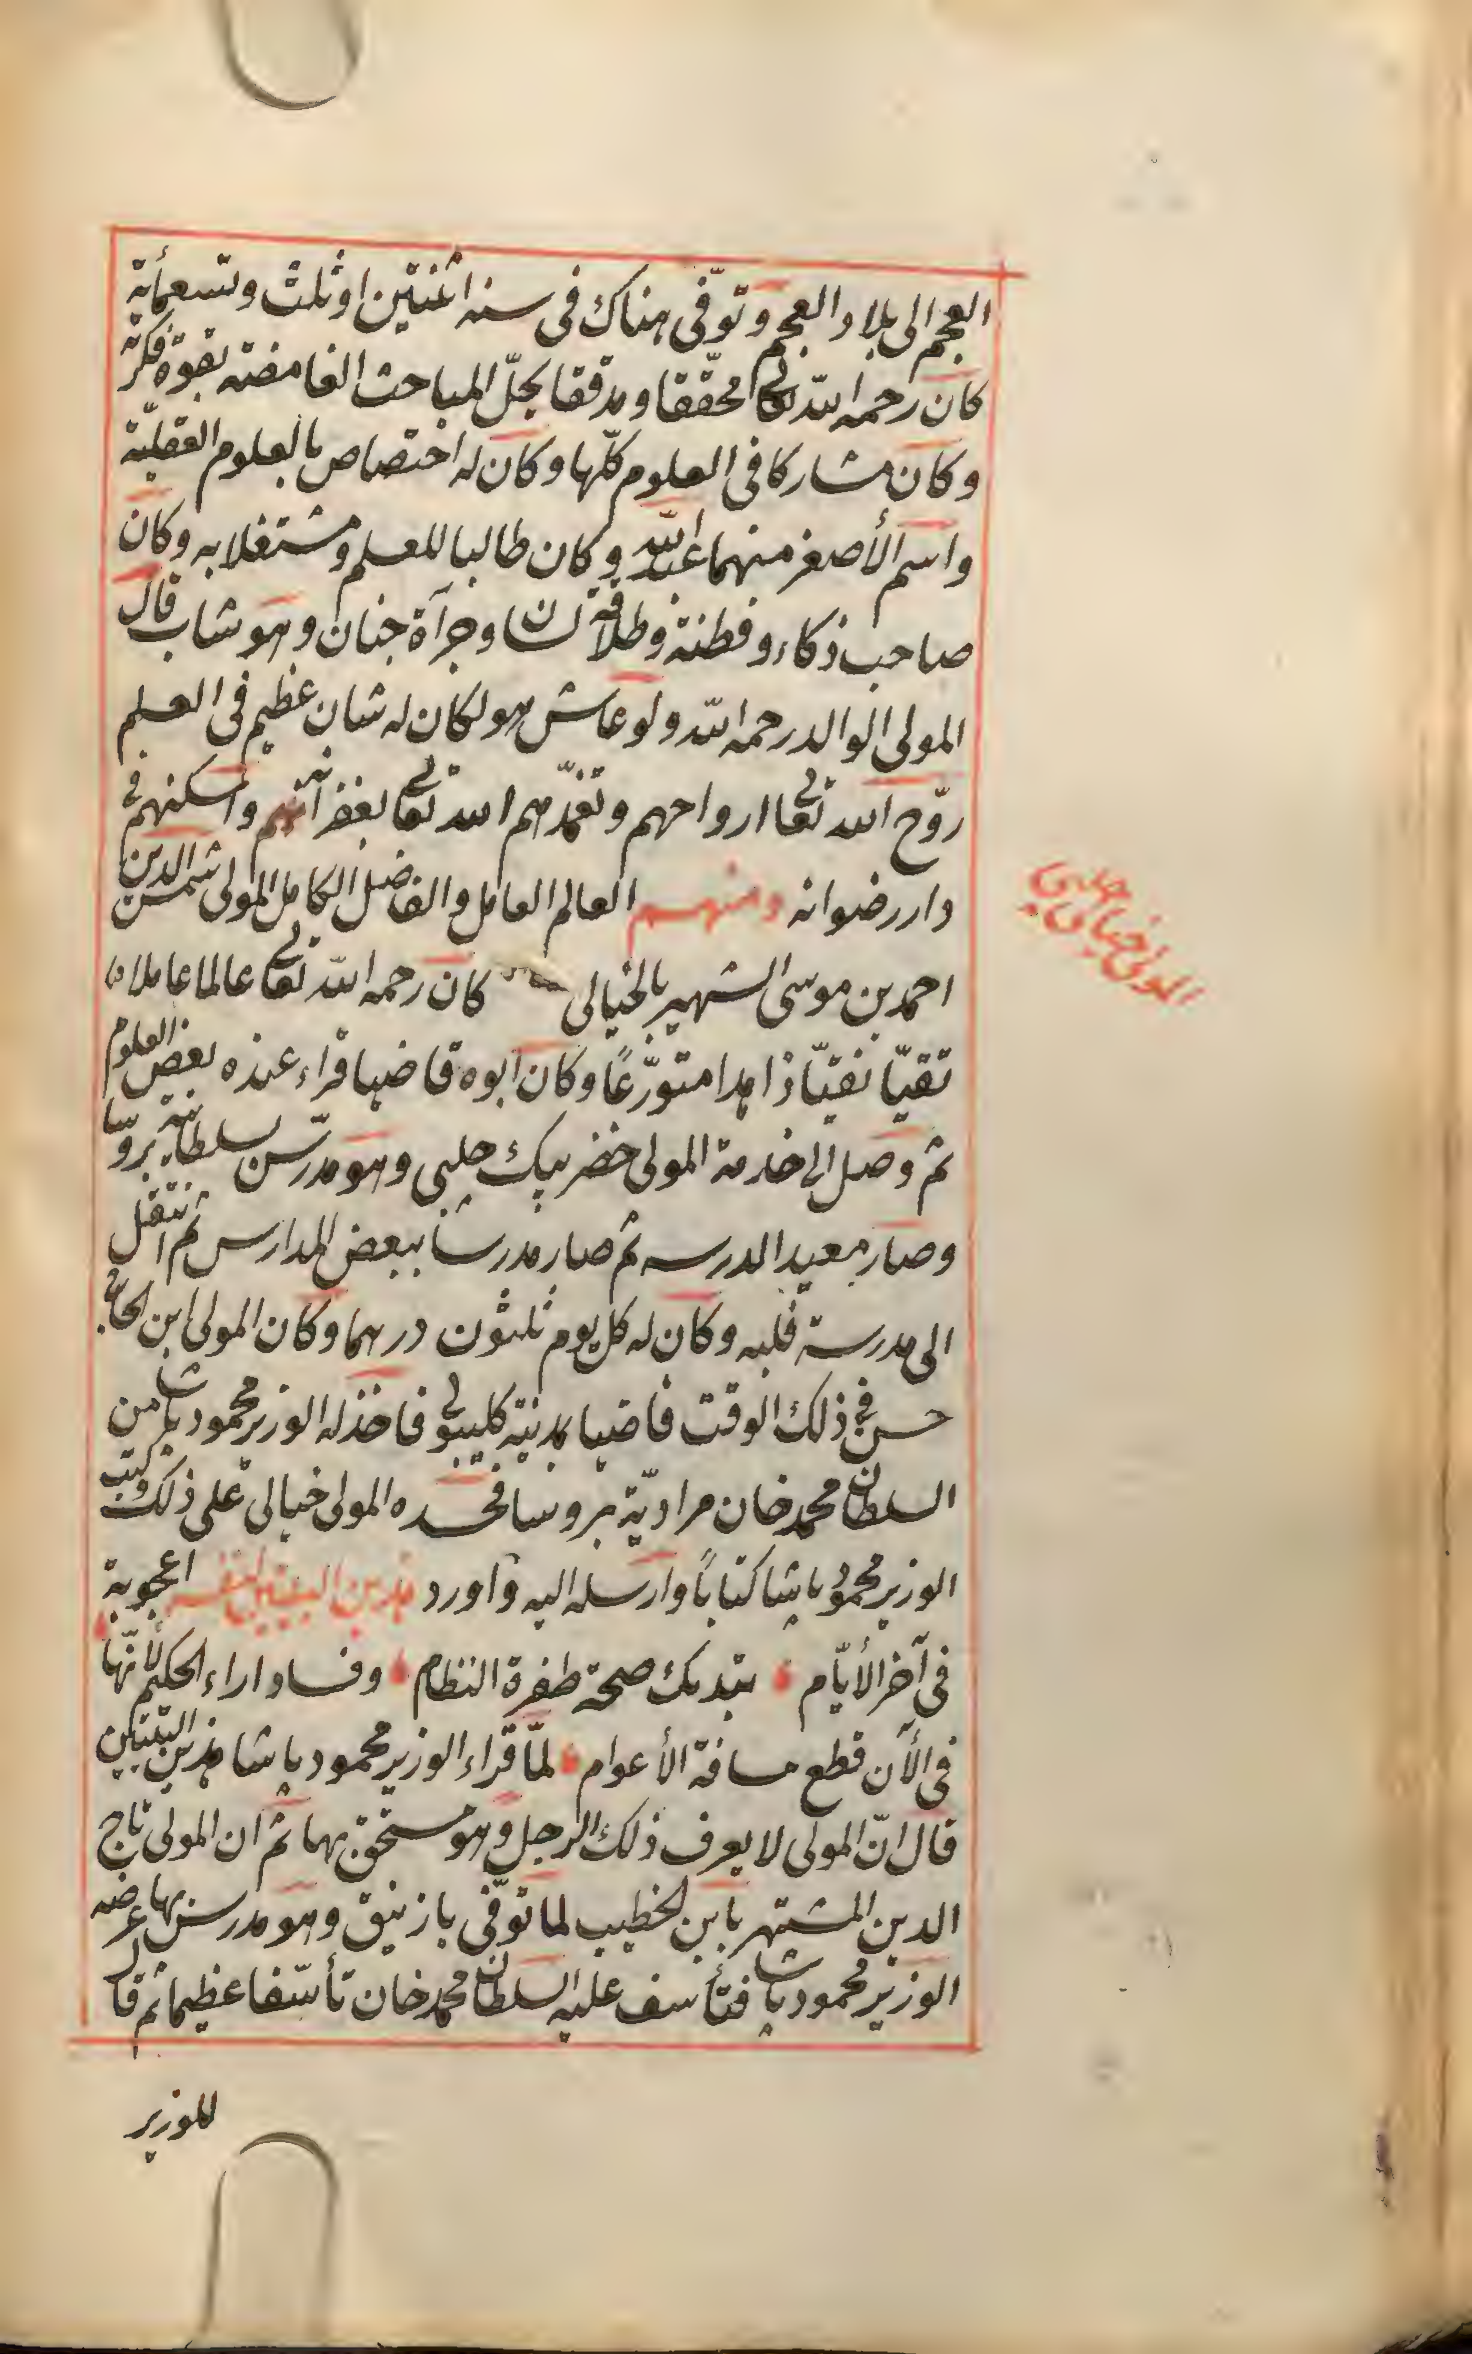 العجم الى بلاد العجم وتوفّى هناك فى سنه اثنتين او ثلث وتسعمأية
كان رحمه اللّه تعالى محقّقا ومدققا يحلّ المباحث الغامضة بقوة فكرته
وكان مشاركا فى العلوم كلّها وكان له اختصاص بالعلوم العقليّة
واسم الأصغر منهما عبد اللّه وكان طالبا للعلم ومشتغلا به وكان
صاحب ذكاء وفطنة وطلاقة لسان وجرآة جنان وهو شاب قال
المولى الوالد رحمه اللّه ولو عاش هو لكان له شان عظيم فى العلم
روّح اللّه تعالى ارواحهم وتغمّدهم اللّه تعالى بغفرانه واسكنهم فى
دار رضوانه ومنهم العالم العامل والفاضل الكامل المولى شمس الدين
احمد بن موسى الشهير بالخيالى كان رحمه اللّه تعالى عالما عاملا
تقيّا نقيّا زاهدا متورّعًا وكان ابوه قاضيا قراء عنده بعض العلوم
ثم وصل الى خدمة المولى خضر بيك جلبى وهو مدرّس بسلطانية بروسا
وصار معيد الدرسه ثم صار مدرسا ببعض المدارس ثم انتقل
الى مدرسة فلبه وكان له كل يوم ثلثون درهما وكان المولى ابن الحاج
حسن فى ذلك الوقت قاضيا بمدينة كليبولى فاخذ له الوزير محمود باشا من
السلطان محمد خان مراديّة بروسا فحسده المولى خيالى على ذلك وكتب
الوزير محمود باشا كتاباً وارسله اليه واورد هذين البيتين اعجوبة
فى آخر الأيّام تبديك صحة طفرة النظام وفساد اراء الحكيم لأنّها
فى الآن قطع مسافة الأعوام لمّا قراء الوزير محمود باشا هذين البيتين
قال انّ المولى لا يعرف ذلك الرجل وهو مستحق بها ثم ان المولى تاج
الدين المشتهر بابن الخطيب لما توفّى بازنيق وهو مدرس بها عرضه
الوزير محمود باشا فتأسف عليه السلطان محمد خان تأسّفا عظيما ثم قال
للوزير
المولى خيالى جلبى